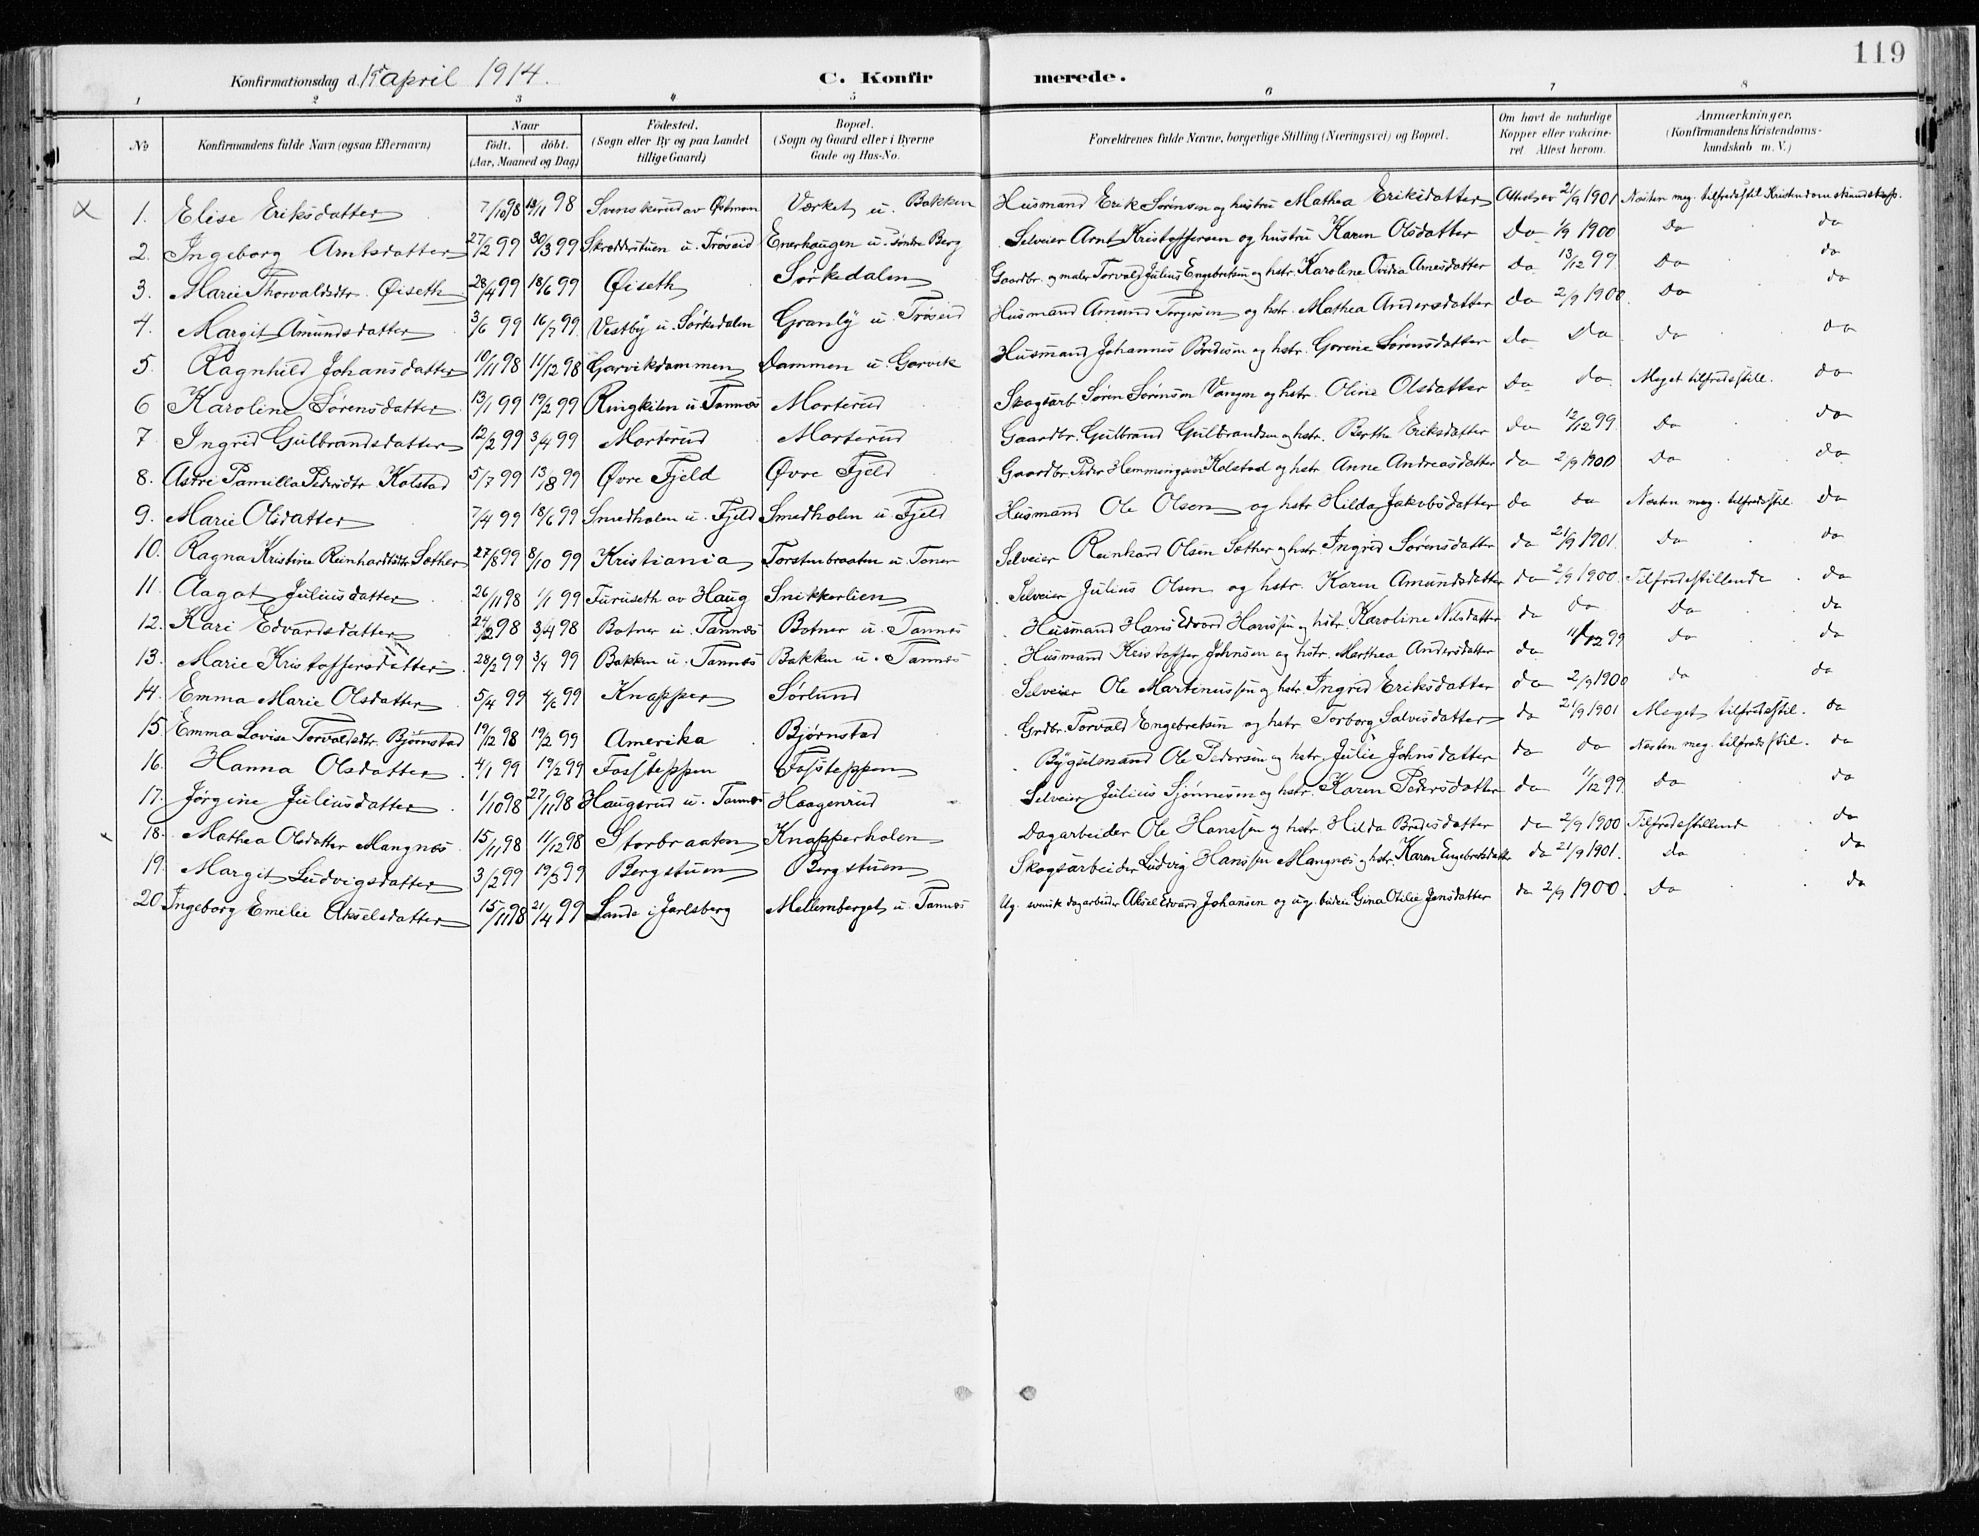 119
Konfirmationsdag d. 19de april 1914. C. Konfirmerede.
1 2 3 4 5 6 7 8
No Konfirmandens fulde Navn (ogsaa Efternavn) Naar født. døbt. (Aar, Maaned og Dag) Fødested. (Sogn eller By og paa Landet tillige Gaard) Bopæl. (Sogn og Gaard eller i Byerne Gade og Hus-No. Forældrenes fulde Navne, borgerlige Stilling (Næringsvei) og Bopæl. Om havt de naturlige Kopper eller vaccineret Attest herom. Anmærkninger, (Konfirmandens Kristendomskundskab m. V.)
1. Elise Eriksdatter 7/10 98 13/11 98 Svenskerud av Østmon Værket u. Bakken Husmand Erik Sørensen og hustru Mathea Eriksdatter Attest av 21/9 1901 Næsten meg. tilfredsstil Kristendomskundskap.
2. Ingeborg Arntsdatter 27/2 99 30/3 99 Skredderstuen u. Trøseid Enerhaugen u. Søndre Berg Selveier Arnt Kristoffersen og hustru Karen Olsdatter Do 1/9 1900 Do do
3. Marie Thorvaldsdtr. Øiseth 28/4 99 18/6 99 Øiseth Sørkedalen Gaardbr. og maler Torvald Julius Engebretsen og hstr. Karoline Ovidia Arnesdatter Do 13/12 99. Do do
4. Margit Amundsdatter 3/6 99 16/7 99. Vestby u. Sørkedalen Granly u. Trøseid Husmand Amund Torgersen og hstr. Mathea Andersdatter Do 2/9 1900. Do do
5. Ragnhild Johansdatter 10/11 98 11/12 98 Garvikdammen Dammen u. Garvik Husmand Johannes Bredesen og hstr. Gorine Sørensdatter Do Do Do do
6 Karoline Sørensdatter 13/1 99 19/2 99 Ringkilen u. Tannæs Morterud Skogsarb Søren Sørensen Vangen og hstr. Oline Olsdatter Do Do. Meget tilfredsstill. do
7. Ingrid Gulbrandsdatter 12/2 99 3/4 99 Morterud Morterud Gaardbr. Gulbrand Gulbrandsen og hstr. Berthe Eriksdatter do 12/12 99. Do do
8. Astri Pamilla Pedersdtr Kolstad 5/7 99 13/8 99 Øvre Fjeld Øvre Fjeld Gaardbr. Peder Hemmingsen Kolstad og hstr Anne Andreasdatter do 2/9 1900 Do do
9. Marie Olsdatter 7/4 99 18/6 99 Smedholen u. Fjeld Smedholen u. Fjeld Husmand Ole Olsen og hstr Hilda Jakobsdatter do do Næsten meg. tilfredsstil. do
10. Ragna Kristine Reinhardtsdtr Sæther 27/8 99 8/10 99 Kristiania Torstenbraaten u. Toner Selveier Reinhard Olsen Sæther og hstr. Ingrid Sørensdatter do 21/9 1901. Do do
11. Aagot Juliusdatter 26/11 98 1/1 99 Furuseth av Haug Snikkerlien Selveier Julius Olsen og hstr. Karen Amundsdatter do 2/9 1900. Tilfredsstillende do
12. Kari Edvardsdatter 24/2 98 3/4 98 Botner u. Tannæs Botner u. Tannæs Husmand Hans Edvard Hanssen og hstr. Karoline Nilsdatter do do Do do
13. Marie Kristoffersdatter 28/2 99 3/4 99 Bakken u. Tannæs Bakken u. Tannæs Husmand Kristoffer Johnsen og hstr. Marthea Andersdatter do 11/12 99 Do do
14. Emma Marie Olsdatter 5/4 99 4/6 99 Knapper Sørlund Selveier Ole Martinussen og hstr. Ingrid Eriksdatter do 2/9 1900 do do
15. Emma Lovise Torvaldsdtr. Bjørnstad 19/12 98 19/2 99 Amerika Bjørnstad Grdbr. Torvald Engebretsen og hstr Torborg Salvesdatter do 21/9 1901 Meget tilfredsstil. do
16. Hanna Olsdatter 4/1 99 19/2 99 Fossteppen Fossteppen Bygselmand Ole Pedersen og hstr. Julie Johnsdatter do do Næsten meg. tilfredsstil. do
17. Jørgine Juliusdatter 1/10 98 27/11 98 Haugsrud u. Tannæs Haagenrud Selveier Julius Sjønnesen og hstr. Karen Pedersdatter do 11/12 99. Do do
18. Mathea Olsdatter Mangnæs 15/11 98 11/12 98 Storbraaten Knapperholen Dagarbeider Ole Hanssen og hstr. Hilda Bredesdatter do 2/9 1900 Tilfredsstillende do
19. Margit Ludvigsdatter 3/2 99 19/3 99 Bergstuen Bergstuen Skogsarbeider Ludvig Hanssen Mangnæs og hstr. Karen Engebretsdatter do 21/9 1901. Do do
20. Ingeborg Emilie Akselsdatter 15/11 98 21/4 99 Sande i Jarlsberg Mellemberget u. Tannæs Ug. svensk dagarbeider Aksel Edvard Johansen og ug. Gina Otilie Jensdatter do 2/9 1900. Do do